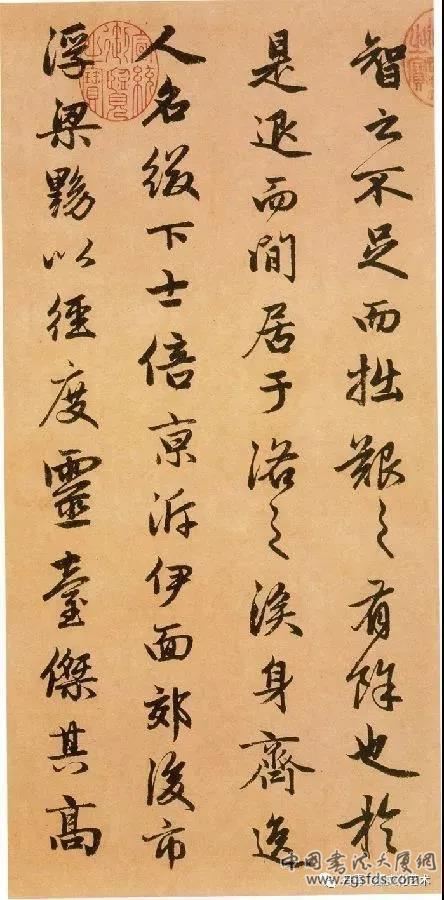 智之不足而拙艱之有餘也於
是退而閒居于洛之涘身齊逸
人名綴下士倍京泝伊面郊後市
浮梁黝以徑度靈臺傑其高
宣統御覽之寶
中國書法大厦網
www.zgsfds.com